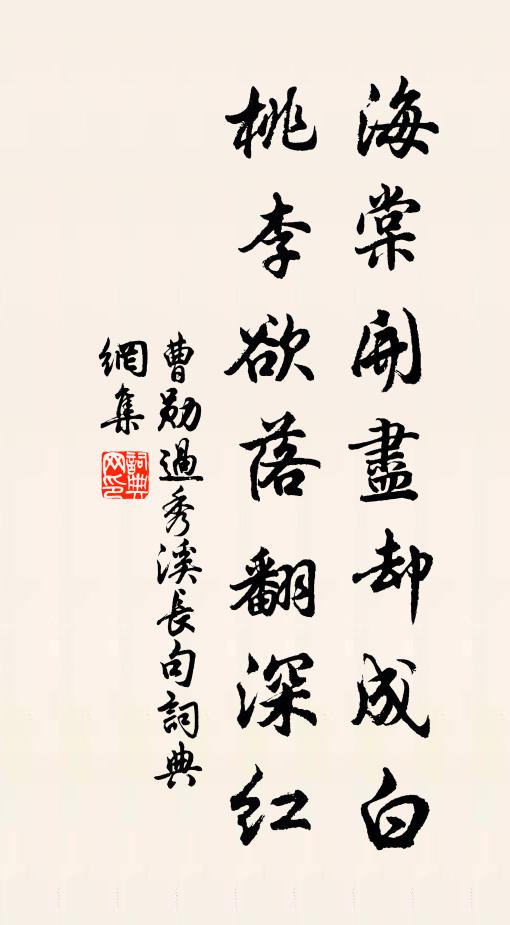 海棠開盡却成白
桃李欲落翻深紅
曹勛過秀溪長句詞典
網集
詞典網印